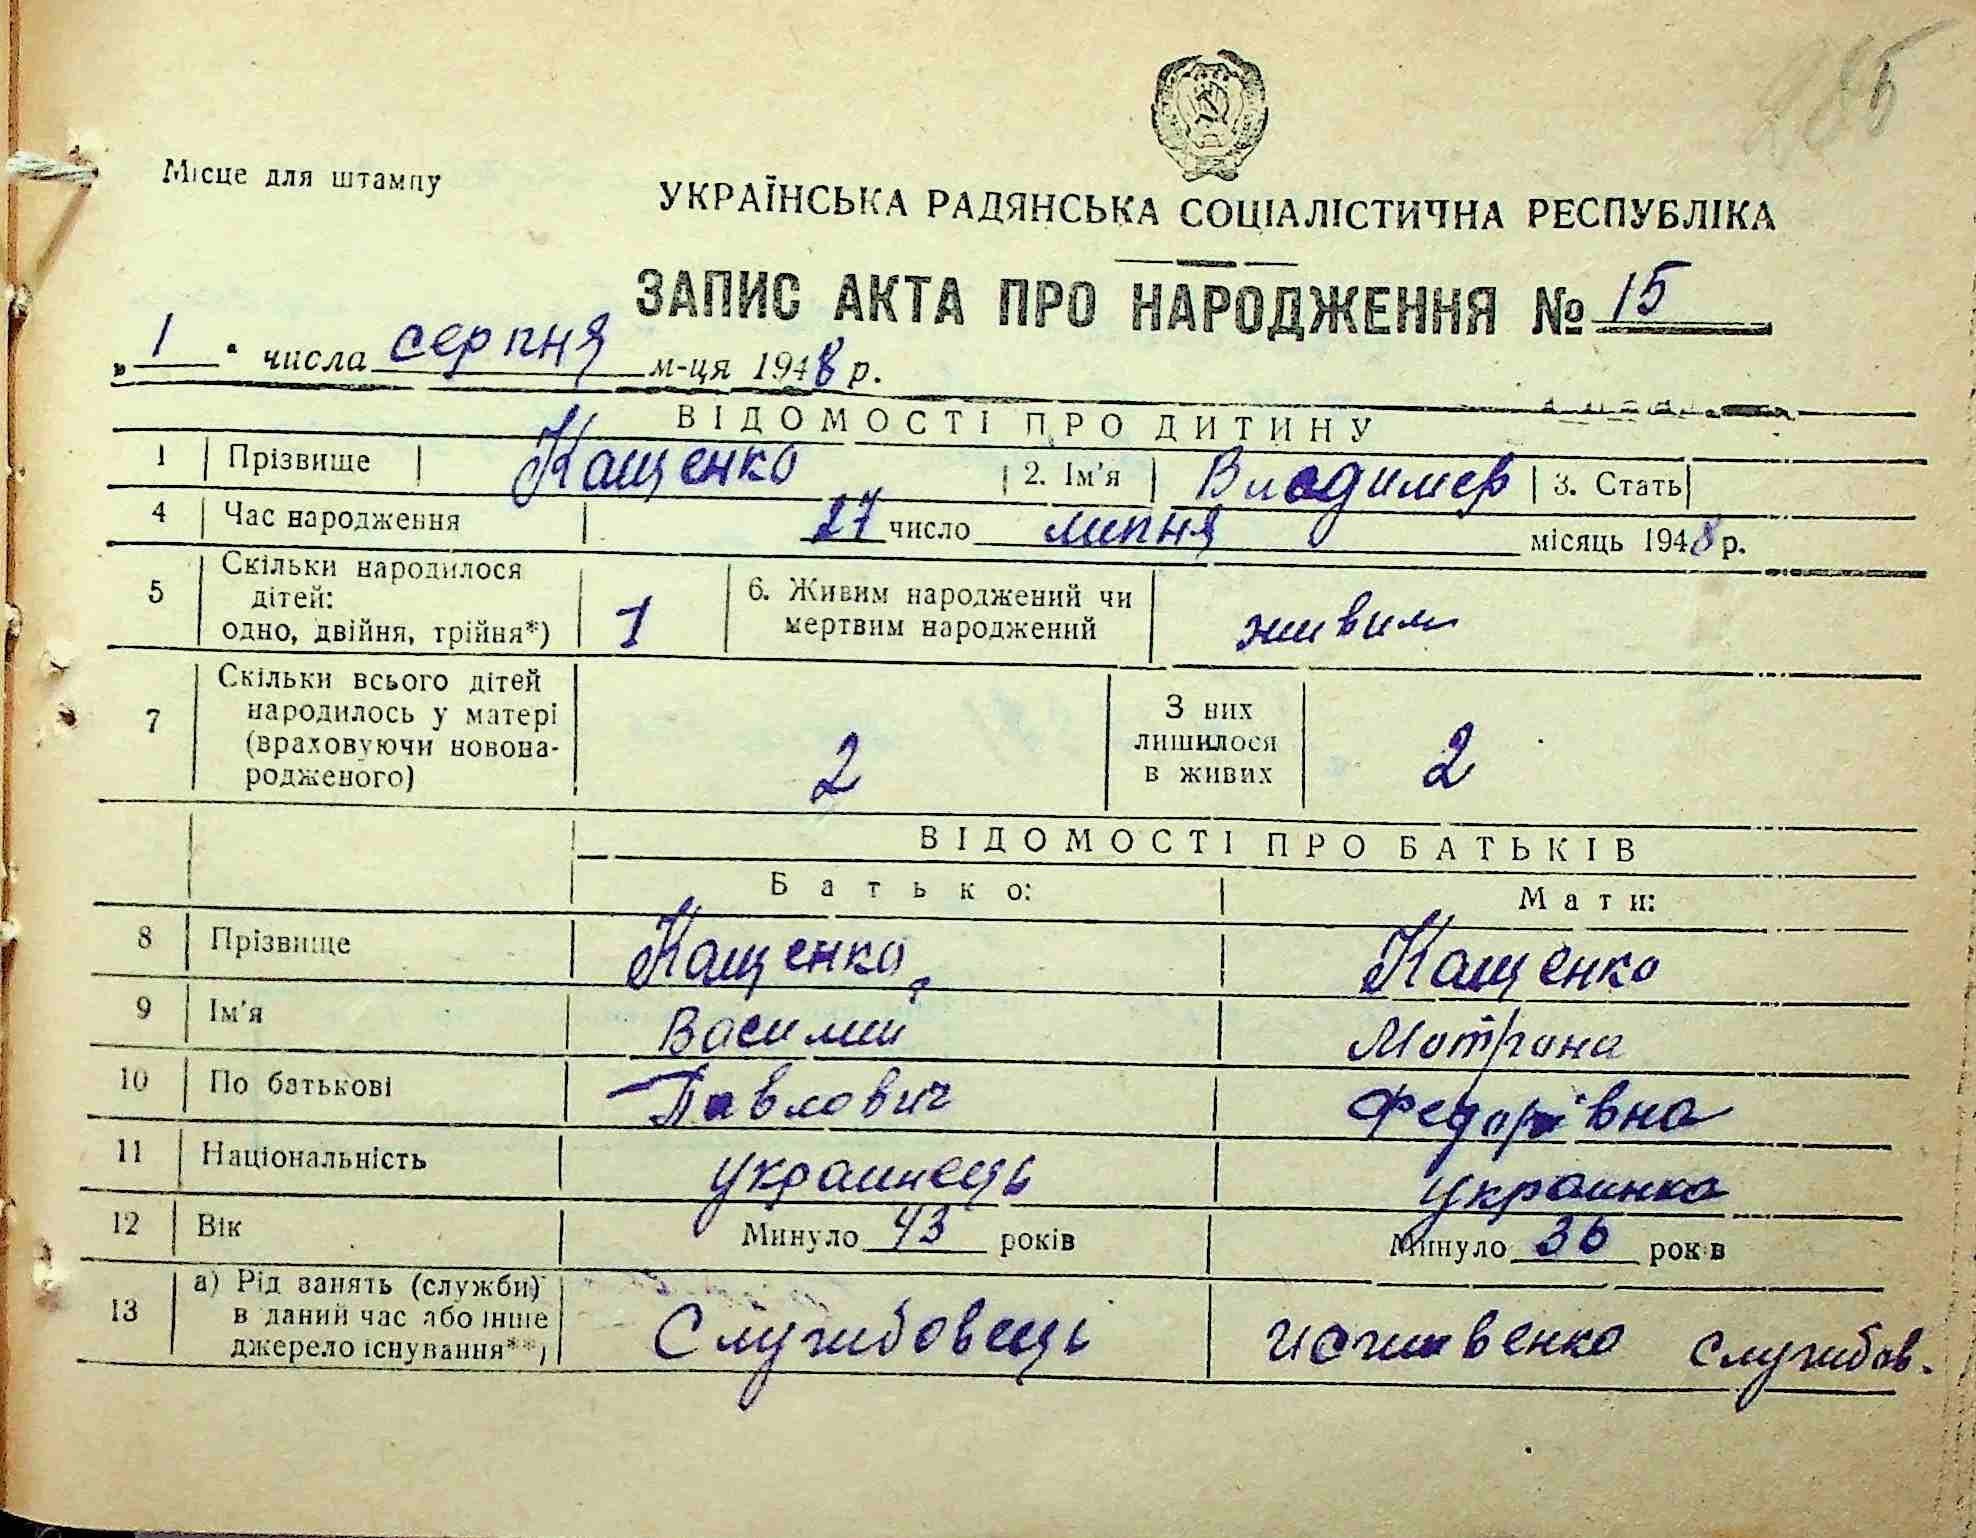 285
Місце для штампу
УКРАЇНСЬКА РАДЯНСЬКА СОЦІАЛІСТИЧНА РЕСПУБЛІКА
ЗАПИС АКТА ПРО НАРОДЖЕННЯ № 15
„ 1 “ числа серпня м-ця 1948 р.
ВІДОМОСТІ ПРО ДИТИНУ
1 Прізвище Кащенко 2. Ім'я Владимер 3. Стать
4 Час народження 27 число липня місяць 1948 р.
5 Скільки народилося
дітей:
одно, двійня, трійня*) 1 6. Живим народжений чи
мертвим народжений живим
7 Скільки всього дітей
народилось у матері
(враховуючи новона-
родженого) 2 З них
лишилося
в живих 2
ВІДОМОСТІ ПРО БАТЬКІВ
Батько: Мати:
8 Прізвище Кащенко Кащенко
9 Ім'я Василий Мотрона
10 По батькові Павлович Федорівна
11 Національність украинець украинка
12 Вік Минуло 43 років Минуло 36 років
13 а) Рід занять (служби)
в даний час або інше
джерело існування**) Службовець службов.